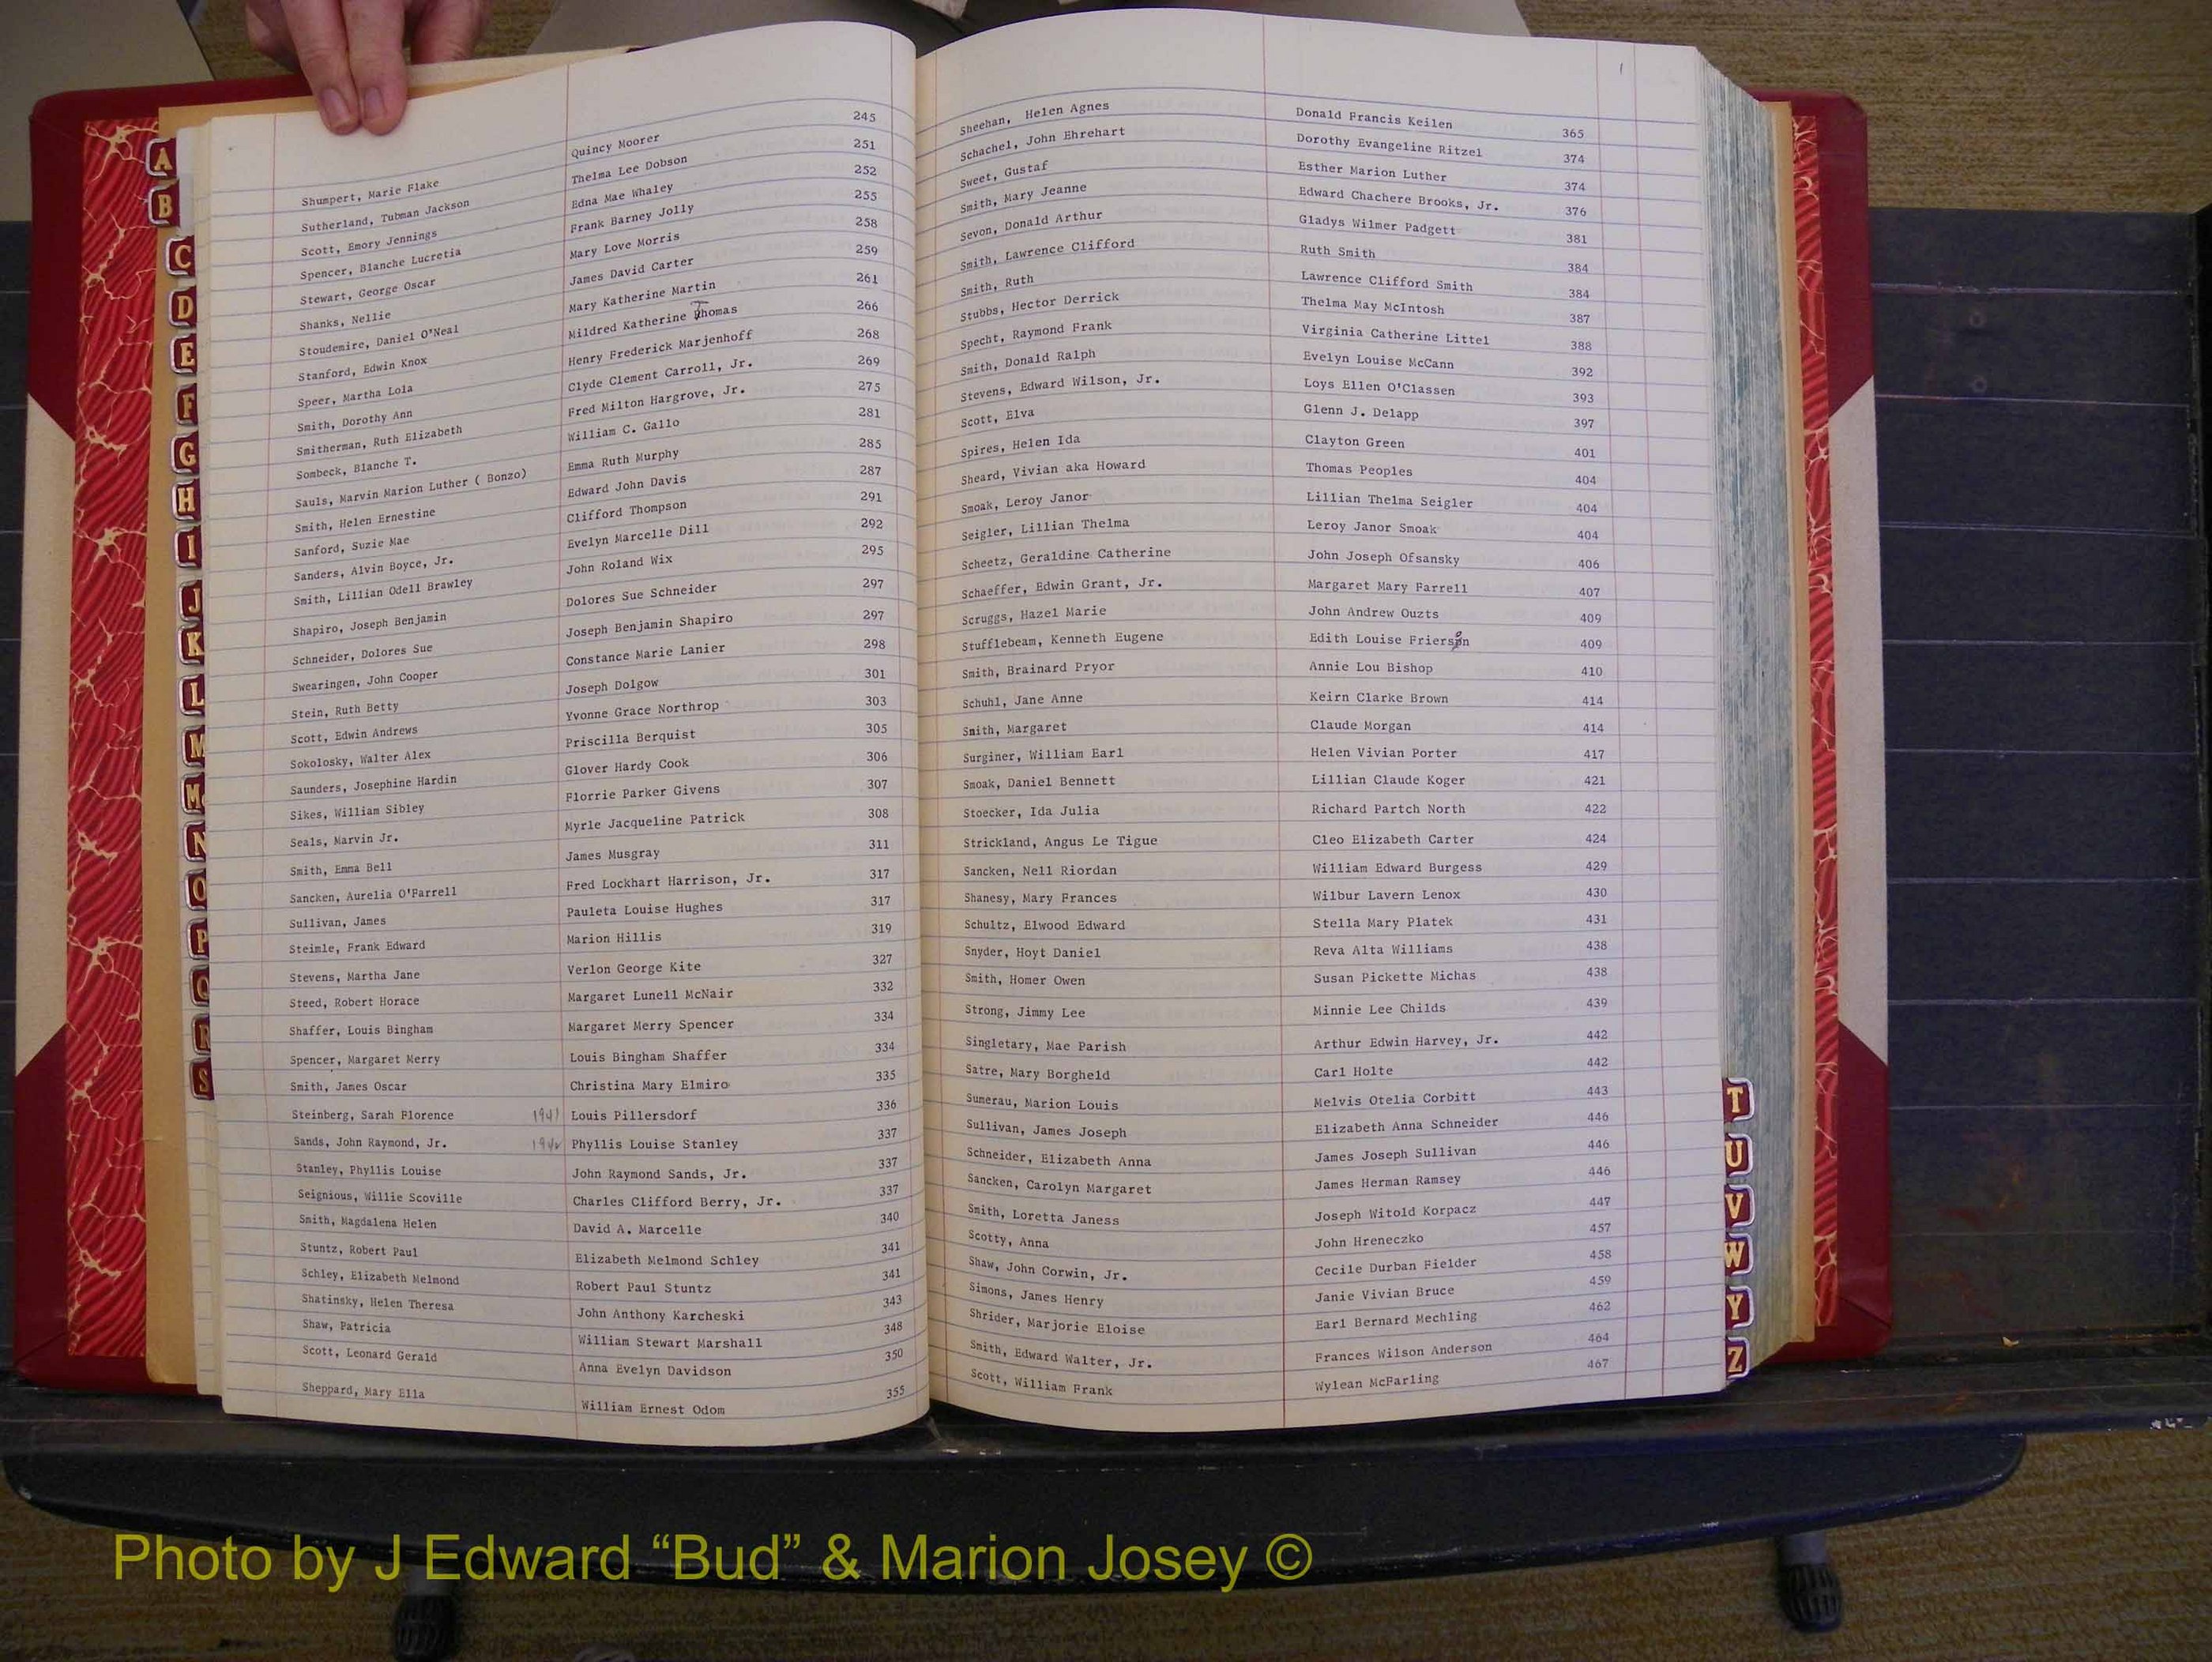 A
B
C
D
E
F
G
H
I
J
K
L
M
Mc
N
O
P
Q
R
S
Shumpert, Marie Flake Quincy Moorer 245
Sutherland, Tubman Jackson Thelma Lee Dobson 251
Scott, Emory Jennings Edna Mae Whaley 252
Spencer, Blanche Lucretia Frank Barney Jolly 255
Stewart, George Oscar Mary Love Morris 258
Shanks, Nellie James David Carter 259
Stoudemire, Daniel O'Neal Mary Katherine Martin 261
Stanford, Edwin Knox Mildred Katherine Thomas 266
Speer, Martha Lola Henry Frederick Marjenhoff 268
Smith, Dorothy Ann Clyde Clement Carroll, Jr. 269
Smitherman, Ruth Elizabeth Fred Milton Hargrove, Jr. 275
Sombeck, Blanche T. William C. Gallo 281
Sauls, Marvin Marion Luther ( Bonzo) Emma Ruth Murphy 285
Smith, Helen Ernestine Edward John Davis 287
Sanford, Suzie Mae Clifford Thompson 291
Sanders, Alvin Boyce, Jr. Evelyn Marcelle Dill 292
Smith, Lillian Odell Brawley John Roland Wix 295
Shapiro, Joseph Benjamin Dolores Sue Schneider 297
Schneider, Dolores Sue Joseph Benjamin Shapiro 297
Swearingen, John Cooper Constance Marie Lanier 298
Stein, Ruth Betty Joseph Dolgow 301
Scott, Edwin Andrews Yvonne Grace Northrop 303
Sokolosky, Walter Alex Priscilla Berquist 305
Saunders, Josephine Hardin Glover Hardy Cook 306
Sikes, William Sibley Florrie Parker Givens 307
Seals, Marvin Jr. Myrle Jacqueline Patrick 308
Smith, Emma Bell James Musgray 311
Sancken, Aurelia O'Farrell Fred Lockhart Harrison, Jr. 317
Sullivan, James Pauleta Louise Hughes 317
Steimle, Frank Edward Marion Hillis 319
Stevens, Martha Jane Verlon George Kite 327
Steed, Robert Horace Margaret Lunell McNair 332
Shaffer, Louis Bingham Margaret Merry Spencer 334
Spencer, Margaret Merry Louis Bingham Shaffer 334
Smith, James Oscar Christina Mary Elmiro 335
Steinberg, Sarah Florence 1941 Louis Pillersdorf 336
Sands, John Raymond, Jr. Phyllis Louise Stanley 337
Stanley, Phyllis Louise John Raymond Sands, Jr. 337
Seignious, Willie Scoville Charles Clifford Berry, Jr. 337
Smith, Magdalena Helen David A. Marcelle 340
Stuntz, Robert Paul Elizabeth Melmond Schley 341
Schley, Elizabeth Melmond Robert Paul Stuntz 341
Shatinsky, Helen Theresa John Anthony Karcheski 343
Shaw, Patricia William Stewart Marshall 348
Scott, Leonard Gerald Anna Evelyn Davidson 350
Sheppard, Mary Ella William Ernest Odom 355
1
Sheehan, Helen Agnes Donald Francis Keilen 365
Schachel, John Ehrehart Dorothy Evangeline Ritzel 374
Sweet, Gustaf Esther Marion Luther 374
Smith, Mary Jeanne Edward Chachere Brooks, Jr. 376
Sevon, Donald Arthur Gladys Wilmer Padgett 381
Smith, Lawrence Clifford Ruth Smith 384
Smith, Ruth Lawrence Clifford Smith 384
Stubbs, Hector Derrick Thelma May McIntosh 387
Specht, Raymond Frank Virginia Catherine Littel 388
Smith, Donald Ralph Evelyn Louise McCann 392
Stevens, Edward Wilson, Jr. Loys Ellen O'Classen 393
Scott, Elva Glenn J. Delapp 397
Spires, Helen Ida Clayton Green 401
Sheard, Vivian aka Howard Thomas Peoples 404
Smoak, Leroy Janor Lillian Thelma Seigler 404
Seigler, Lillian Thelma Leroy Janor Smoak 404
Scheetz, Geraldine Catherine John Joseph Ofsansky 406
Schaeffer, Edwin Grant, Jr. Margaret Mary Farrell 407
Scruggs, Hazel Marie John Andrew Ouzts 409
Stufflebeam, Kenneth Eugene Edith Louise Frierson 409
Smith, Brainard Pryor Annie Lou Bishop 410
Schuhl, Jane Anne Keirn Clarke Brown 414
Smith, Margaret Claude Morgan 414
Surginer, William Earl Helen Vivian Porter 417
Smoak, Daniel Bennett Lillian Claude Koger 421
Stoecker, Ida Julia Richard Partch North 422
Strickland, Angus Le Tigue Cleo Elizabeth Carter 424
Sancken, Nell Riordan William Edward Burgess 429
Shanesy, Mary Frances Wilbur Lavern Lenox 430
Schultz, Elwood Edward Stella Mary Platek 431
Snyder, Hoyt Daniel Reva Alta Williams 438
Smith, Homer Owen Susan Pickette Michas 438
Strong, Jimmy Lee Minnie Lee Childs 439
Singletary, Mae Parish Arthur Edwin Harvey, Jr. 442
Satre, Mary Borgheld Carl Holte 442
Sumerau, Marion Louis Melvis Otelia Corbitt 443
Sullivan, James Joseph Elizabeth Anna Schneider 446
Schneider, Elizabeth Anna James Joseph Sullivan 446
Sancken, Carolyn Margaret James Herman Ramsey 446
Smith, Loretta Janess Joseph Witold Korpacz 447
Scotty, Anna John Hreneczko 457
Shaw, John Corwin, Jr. Cecile Durban Fielder 458
Simons, James Henry Janie Vivian Bruce 459
Shrider, Marjorie Eloise Earl Bernard Mechling 462
Smith, Edward Walter, Jr. Frances Wilson Anderson 464
Scott, William Frank Wylean McFarling 467
T
U
V
W
Y
Z
Photo by J Edward “Bud” & Marion Josey ©